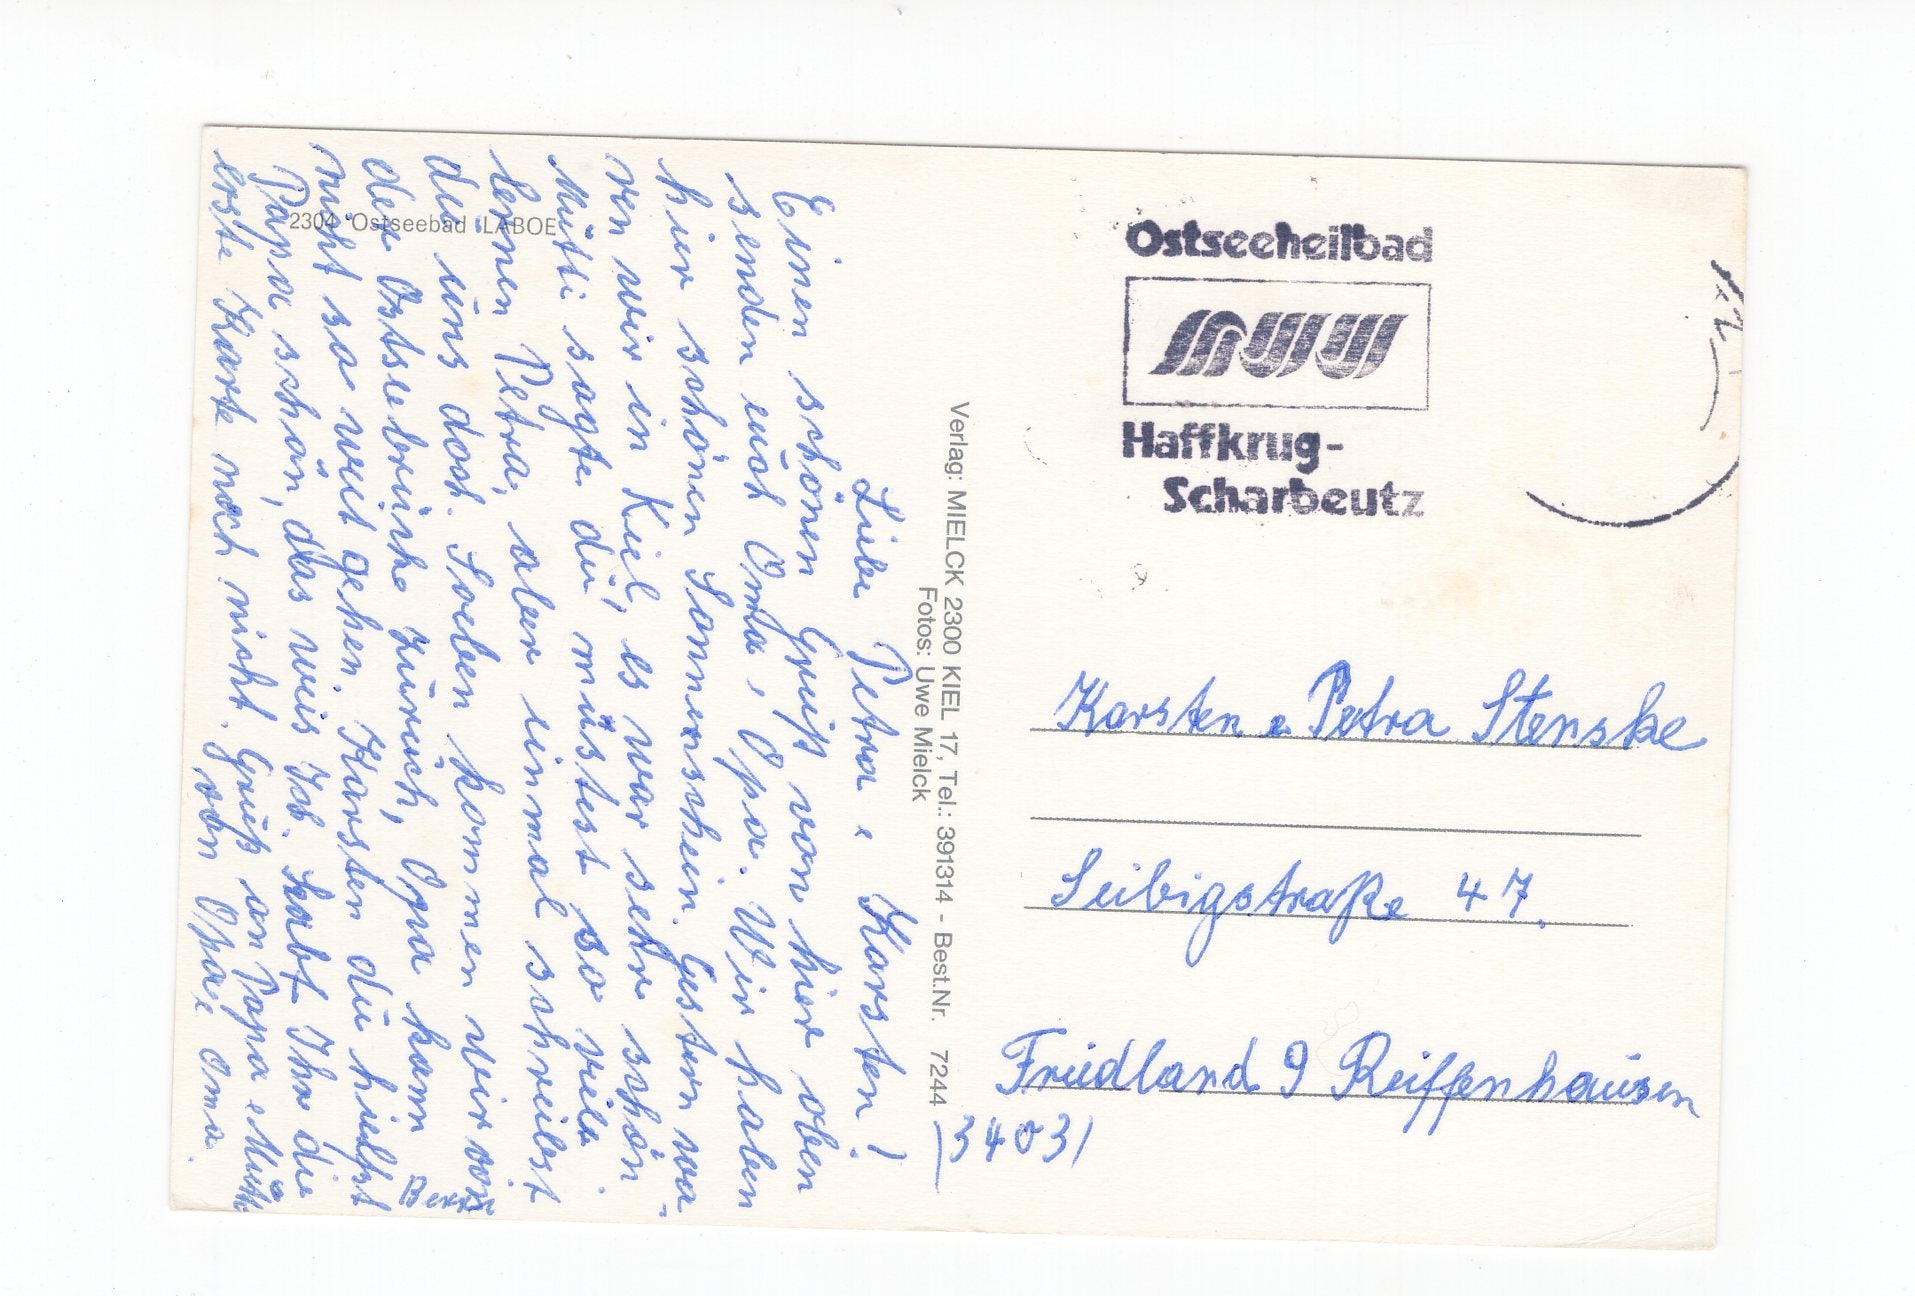 2304 Ostseebad LABOE
Liebe Petra e Karsten!
Einen schönen Gruß von hier oben
senden euch Oma e Opa. Wir haben
hier schönen Sonnenschein. Gestern wa-
ren wir in Kiel, es war sehr schön
Mutti sagte du müstest so viel
lernen Petra, aber einmal schreibst
du uns doch. Soeben kommen wir von
der Ostseebrücke zurück, Opa kann
nicht so weit gehen. Karsten du hielfst
Papa schön, das weis Ich. Habt Ihr die
erste Karte noch nicht. Gruß an Papa e Mutti
von Opa e Oma.
Verlag: MIELCK 2300 KIEL 17, Tel.: 391314 - Best.Nr. 7244
Fotos: Uwe Mielck
Ostseeheilbad
Haffkrug-
Scharbeutz
Karsten e Petra Stenske
Leibigstraße 47.
Friedland 9 Reiffenhausen
3403